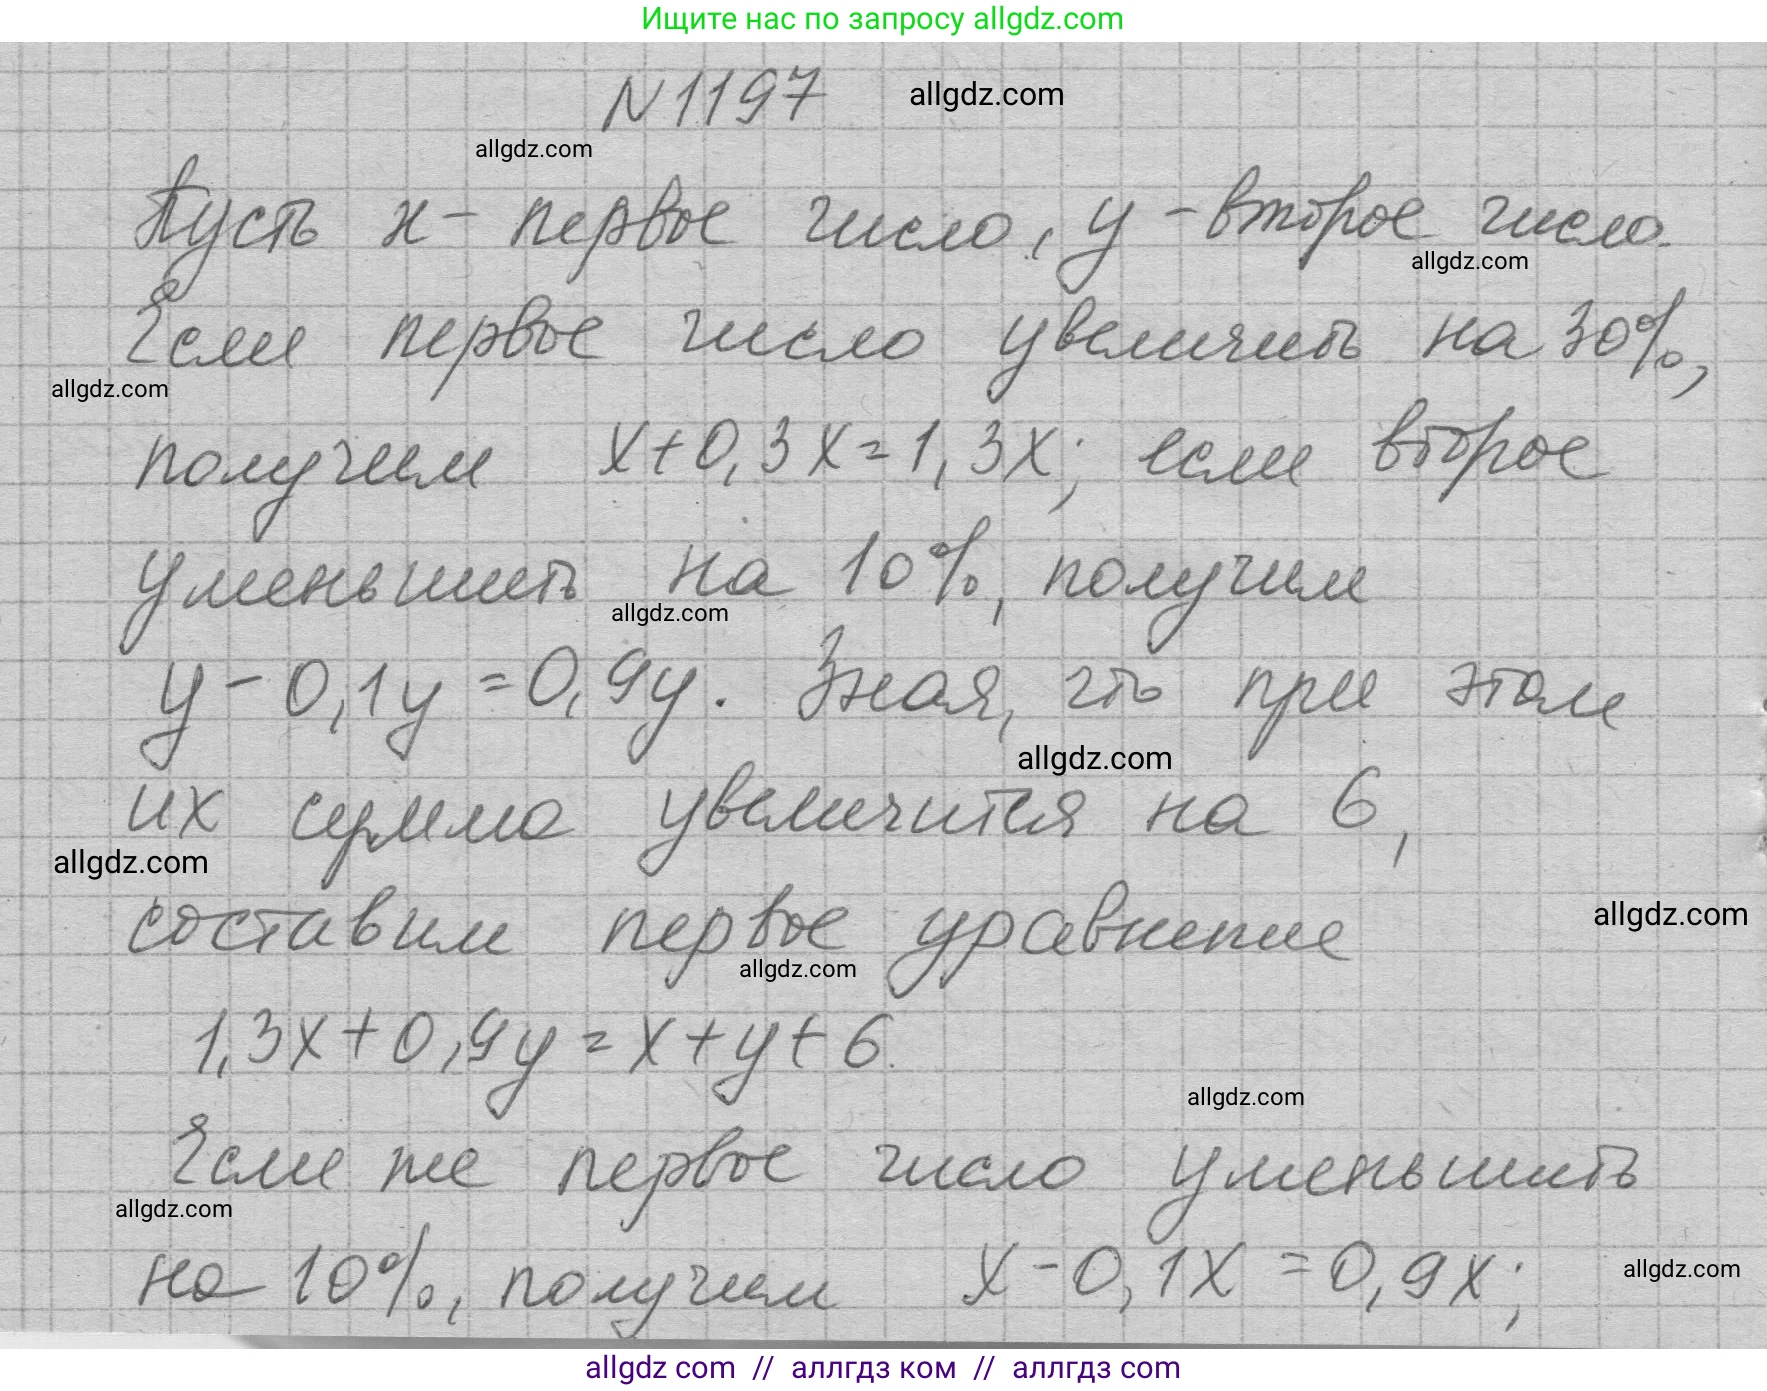 Ищите нас по запросу allgdz.com
N 1197 allgdz.com
allgdz.com
Пусть x - первое число, y - второе число.
allgdz.com
Если первое число увеличить на 30%,
allgdz.com
получим x+0,3x=1,3x; если второе
уменьшить на 10%, получим
allgdz.com
y-0,1y=0,9y. Зная, что при этом
allgdz.com
их сумма увеличится на 6,
allgdz.com
составим первое уравнение
allgdz.com
allgdz.com
1,3x+0,9y=x+y+6.
allgdz.com
Если же первое число уменьшить
allgdz.com
на 10%, получим x-0,1x=0,9x;
allgdz.com
allgdz com // аллгдз ком // аллгдз com